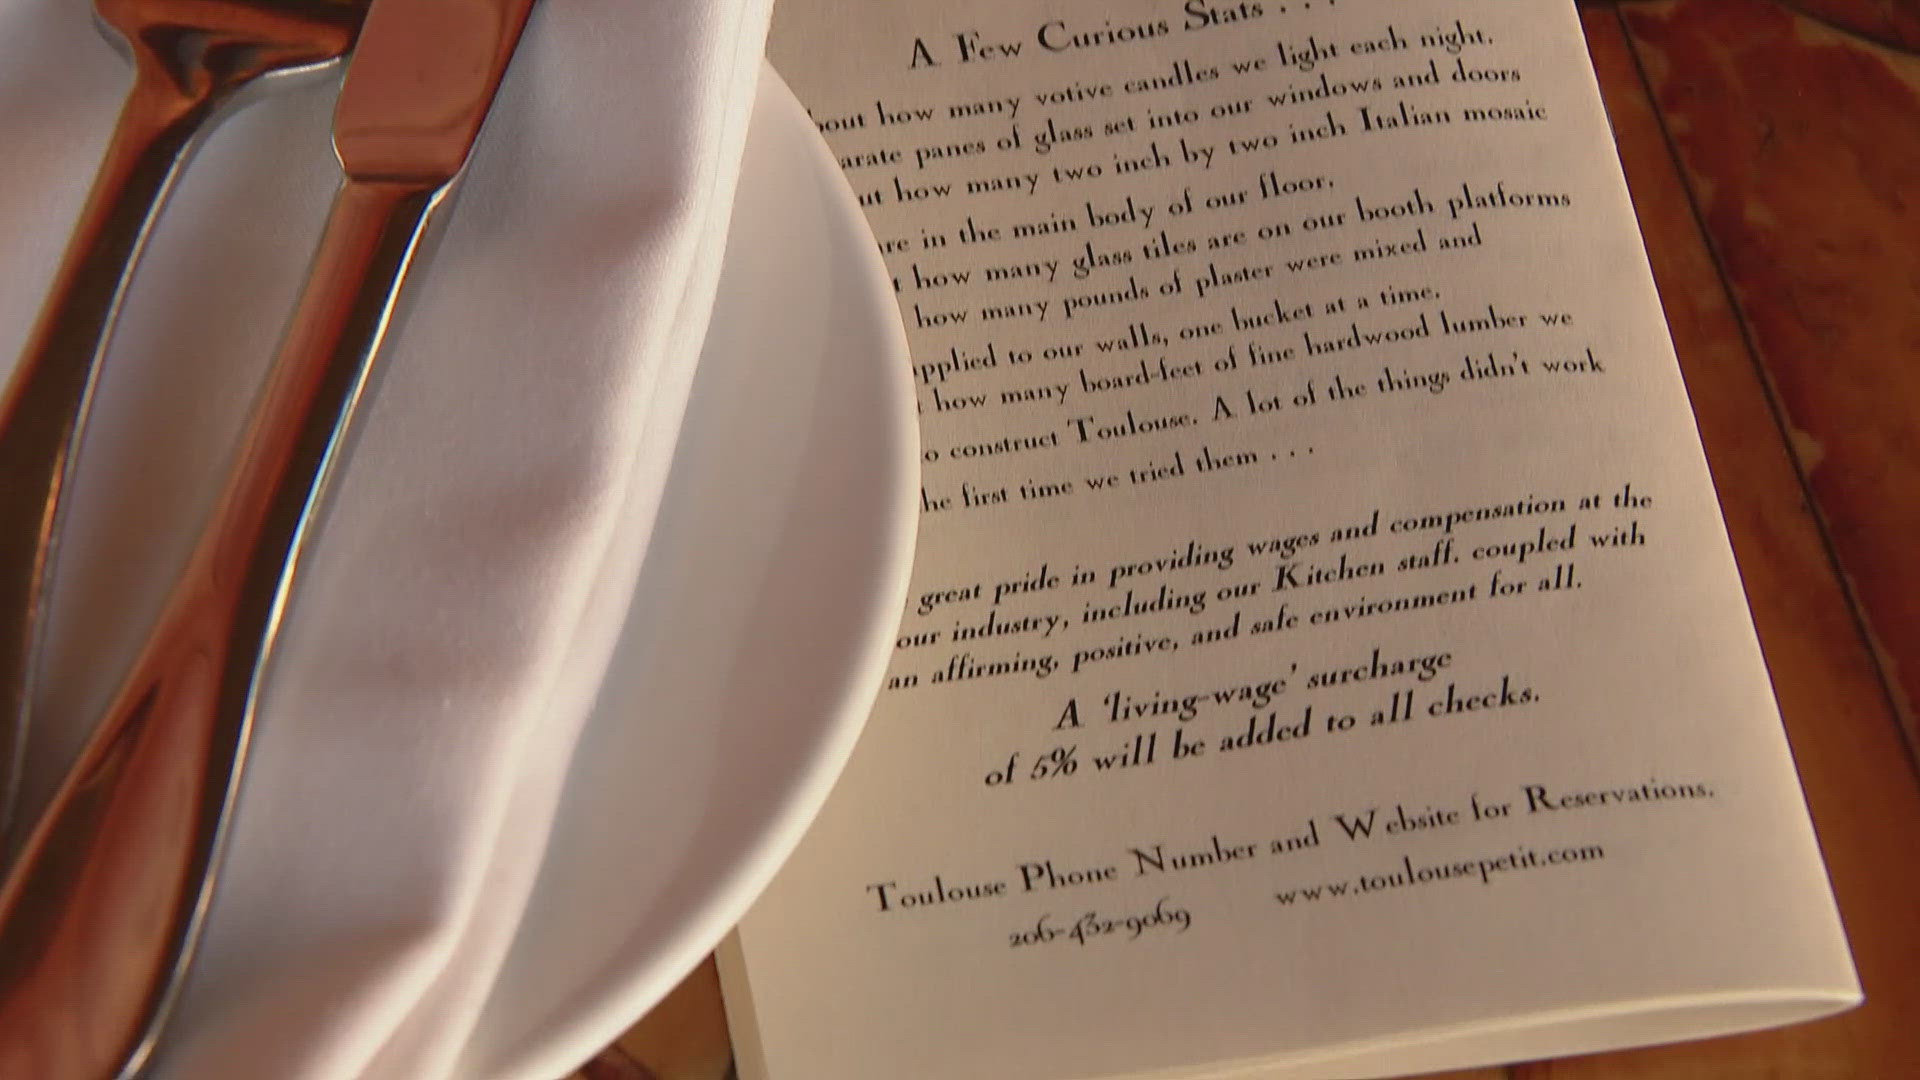 A Few Curious Stats . . .
how many votive candles we light each night.
panes of glass set into our windows and doors
how many two inch by two inch Italian mosaic
in the main body of our floor.
how many glass tiles are on our booth platforms
how many pounds of plaster were mixed and
to our walls, one bucket at a time.
how many board-feet of fine hardwood lumber we
construct Toulouse. A lot of the things didn't work
first time we tried them . . .
great pride in providing wages and compensation at the
our industry, including our Kitchen staff. coupled with
an affirming, positive, and safe environment for all.
A 'living-wage' surcharge
of 5% will be added to all checks.
Toulouse Phone Number and Website for Reservations.
206-432-9069 www.toulousepetit.com